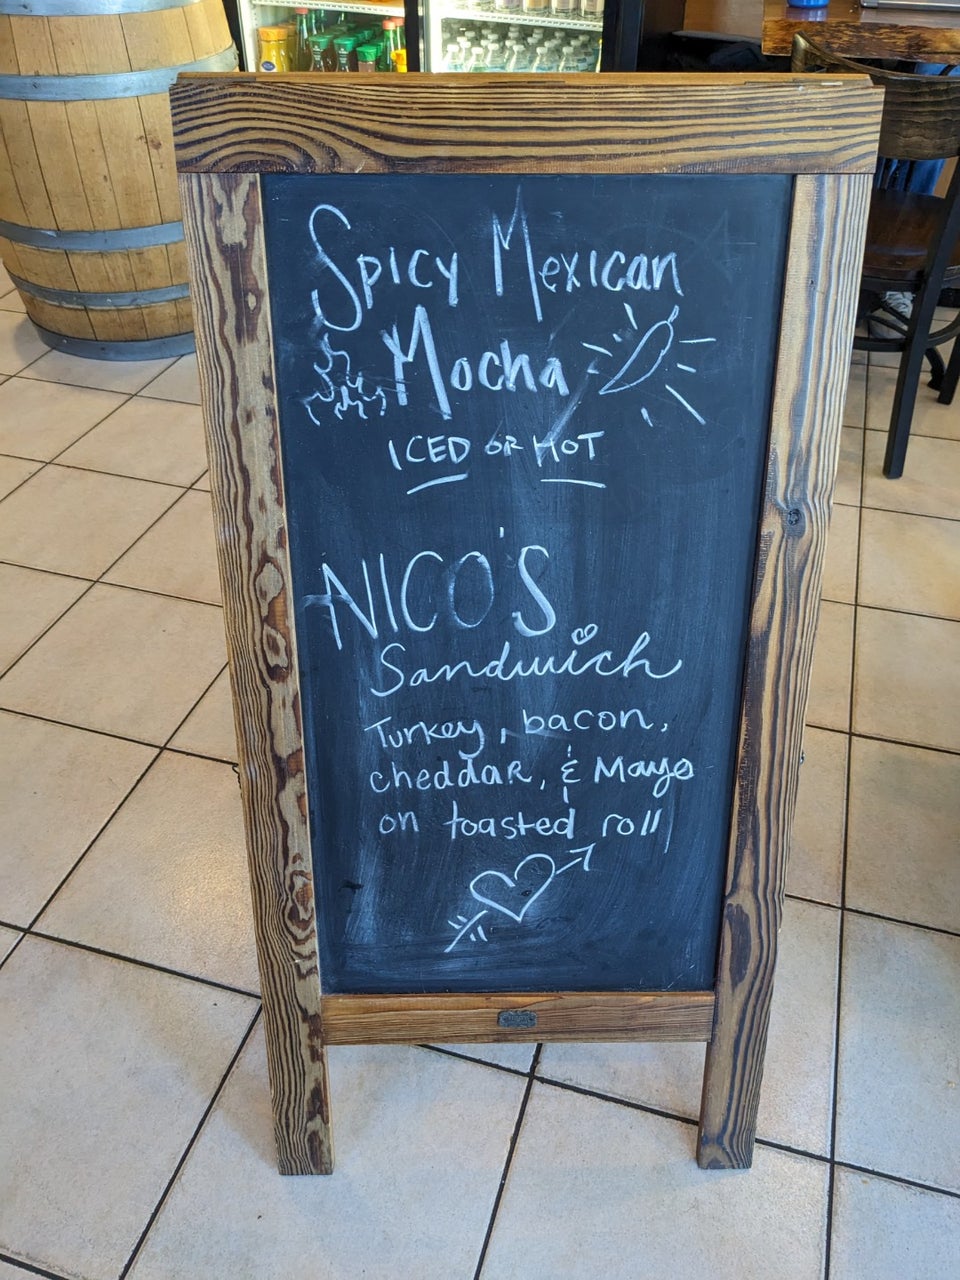 Spicy Mexican
Mocha
ICED OR HOT
NICO'S
Sandwich
Turkey, bacon,
cheddar, & Mayo
on toasted roll